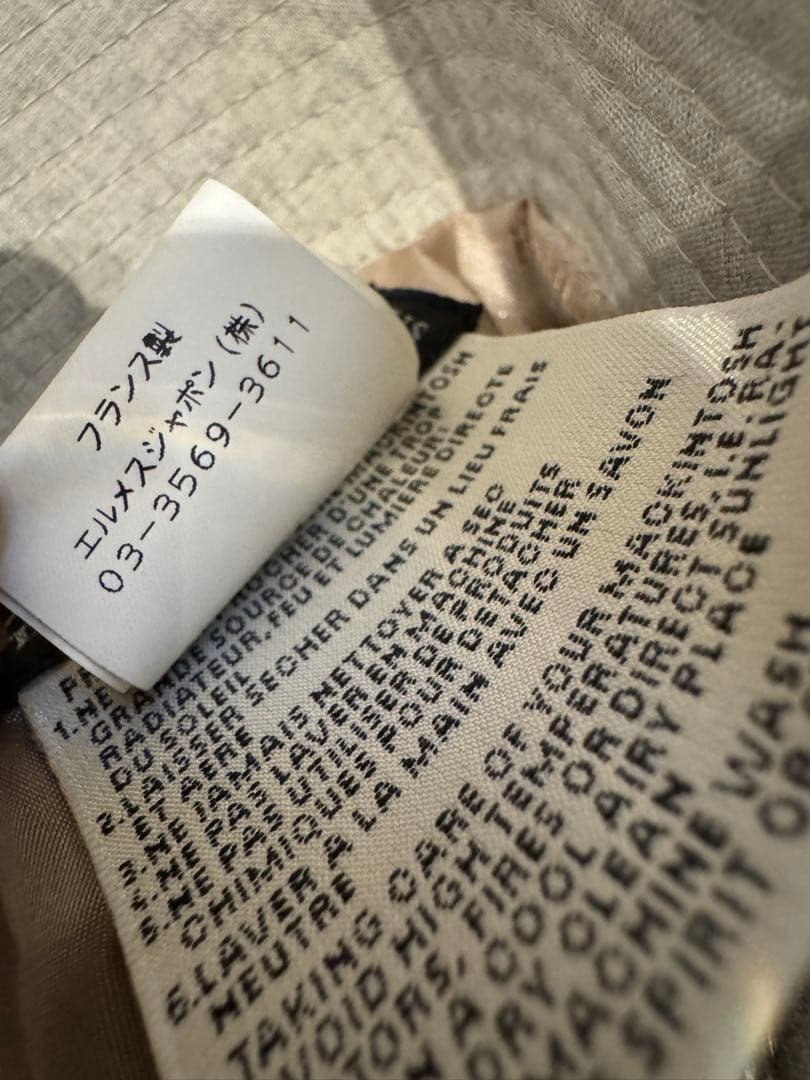 フランス製
エルメスジャポン(株)
03-3569-3611
D'UNE TROP
SOURCE DE CHALEUR:
RADIATEUR, FEU ET LUMIERE DIRECTE
DU SOLEIL
2. LAISSER SECHER DANS UN LIEU FRAIS
ET AERE
3. NE JAMAIS NETTOYER A SEC
4. NE PAS LAVER EN MACHINE
5. NE PAS UTILISER DE PRODUITS
CHIMIQUES POUR DETACHER
6. LAVER A LA MAIN AVEC UN SAVON
NEUTRE
TAKING CARE OF YOUR MACKINTOSH
HIGH TEMPERATURES, I.E. RA-
FIRES OR DIRECT SUNLIGHT
A COOL AIRY PLACE
DRY CLEAN
MACHINE WASH
SPIRIT OR